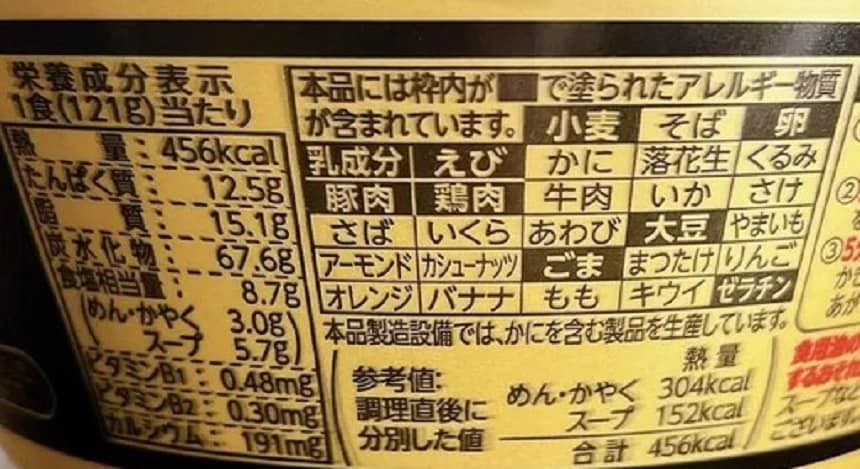 栄養成分表示
1食(121g)当たり
熱量:456kcal
たんぱく質:12.5g
脂質:15.1g
炭水化物:67.6g
食塩相当量:8.7g
(めん・かやく 3.0g
スープ 5.7g)
ビタミンB1:0.48mg
ビタミンB2:0.30mg
カルシウム:191mg
本品には枠内が■で塗られたアレルギー物質
が含まれています。 小麦 そば 卵
乳成分 えび かに 落花生 くるみ
豚肉 鶏肉 牛肉 いか さけ
さば いくら あわび 大豆 やまいも
アーモンド カシューナッツ ごま まつたけ りんご
オレンジ バナナ もも キウイ ゼラチン
本品製造設備では、かにを含む製品を生産しています。
参考値:
調理直後に
分別した値
熱量
めん・かやく 304kcal
スープ 152kcal
合計 456kcal
②
③5
か
あか
食用油の
するみそ
スープな
ございます